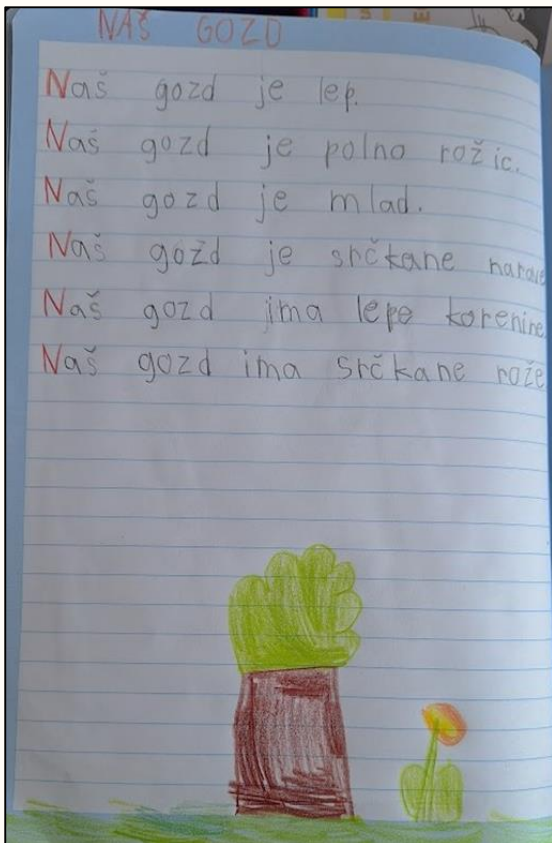 NAŠ GOZD
Naš gozd je lep.
Naš gozd je polno rožic.
Naš gozd je mlad.
Naš gozd je srčkane narave
Naš gozd ima lepe korenine
Naš gozd ima srčkane rože